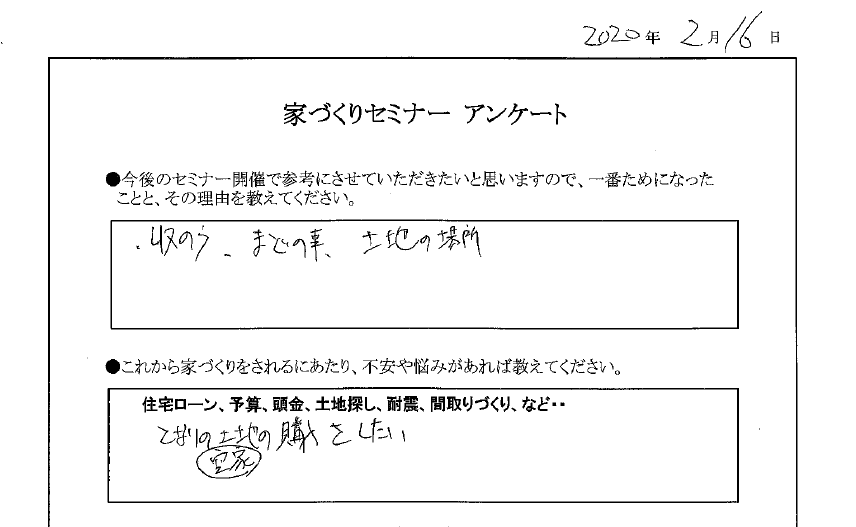 2020年 2月16日
家づくりセミナー アンケート
●今後のセミナー開催で参考にさせていただきたいと思いますので、一番ためになった
ことと、その理由を教えてください。
・収のう、まどの事、土地の場所
●これから家づくりをされるにあたり、不安や悩みがあれば教えてください。
住宅ローン、予算、頭金、土地探し、耐震、間取りづくり、など・・
となりの土地の購入をしたい
空家